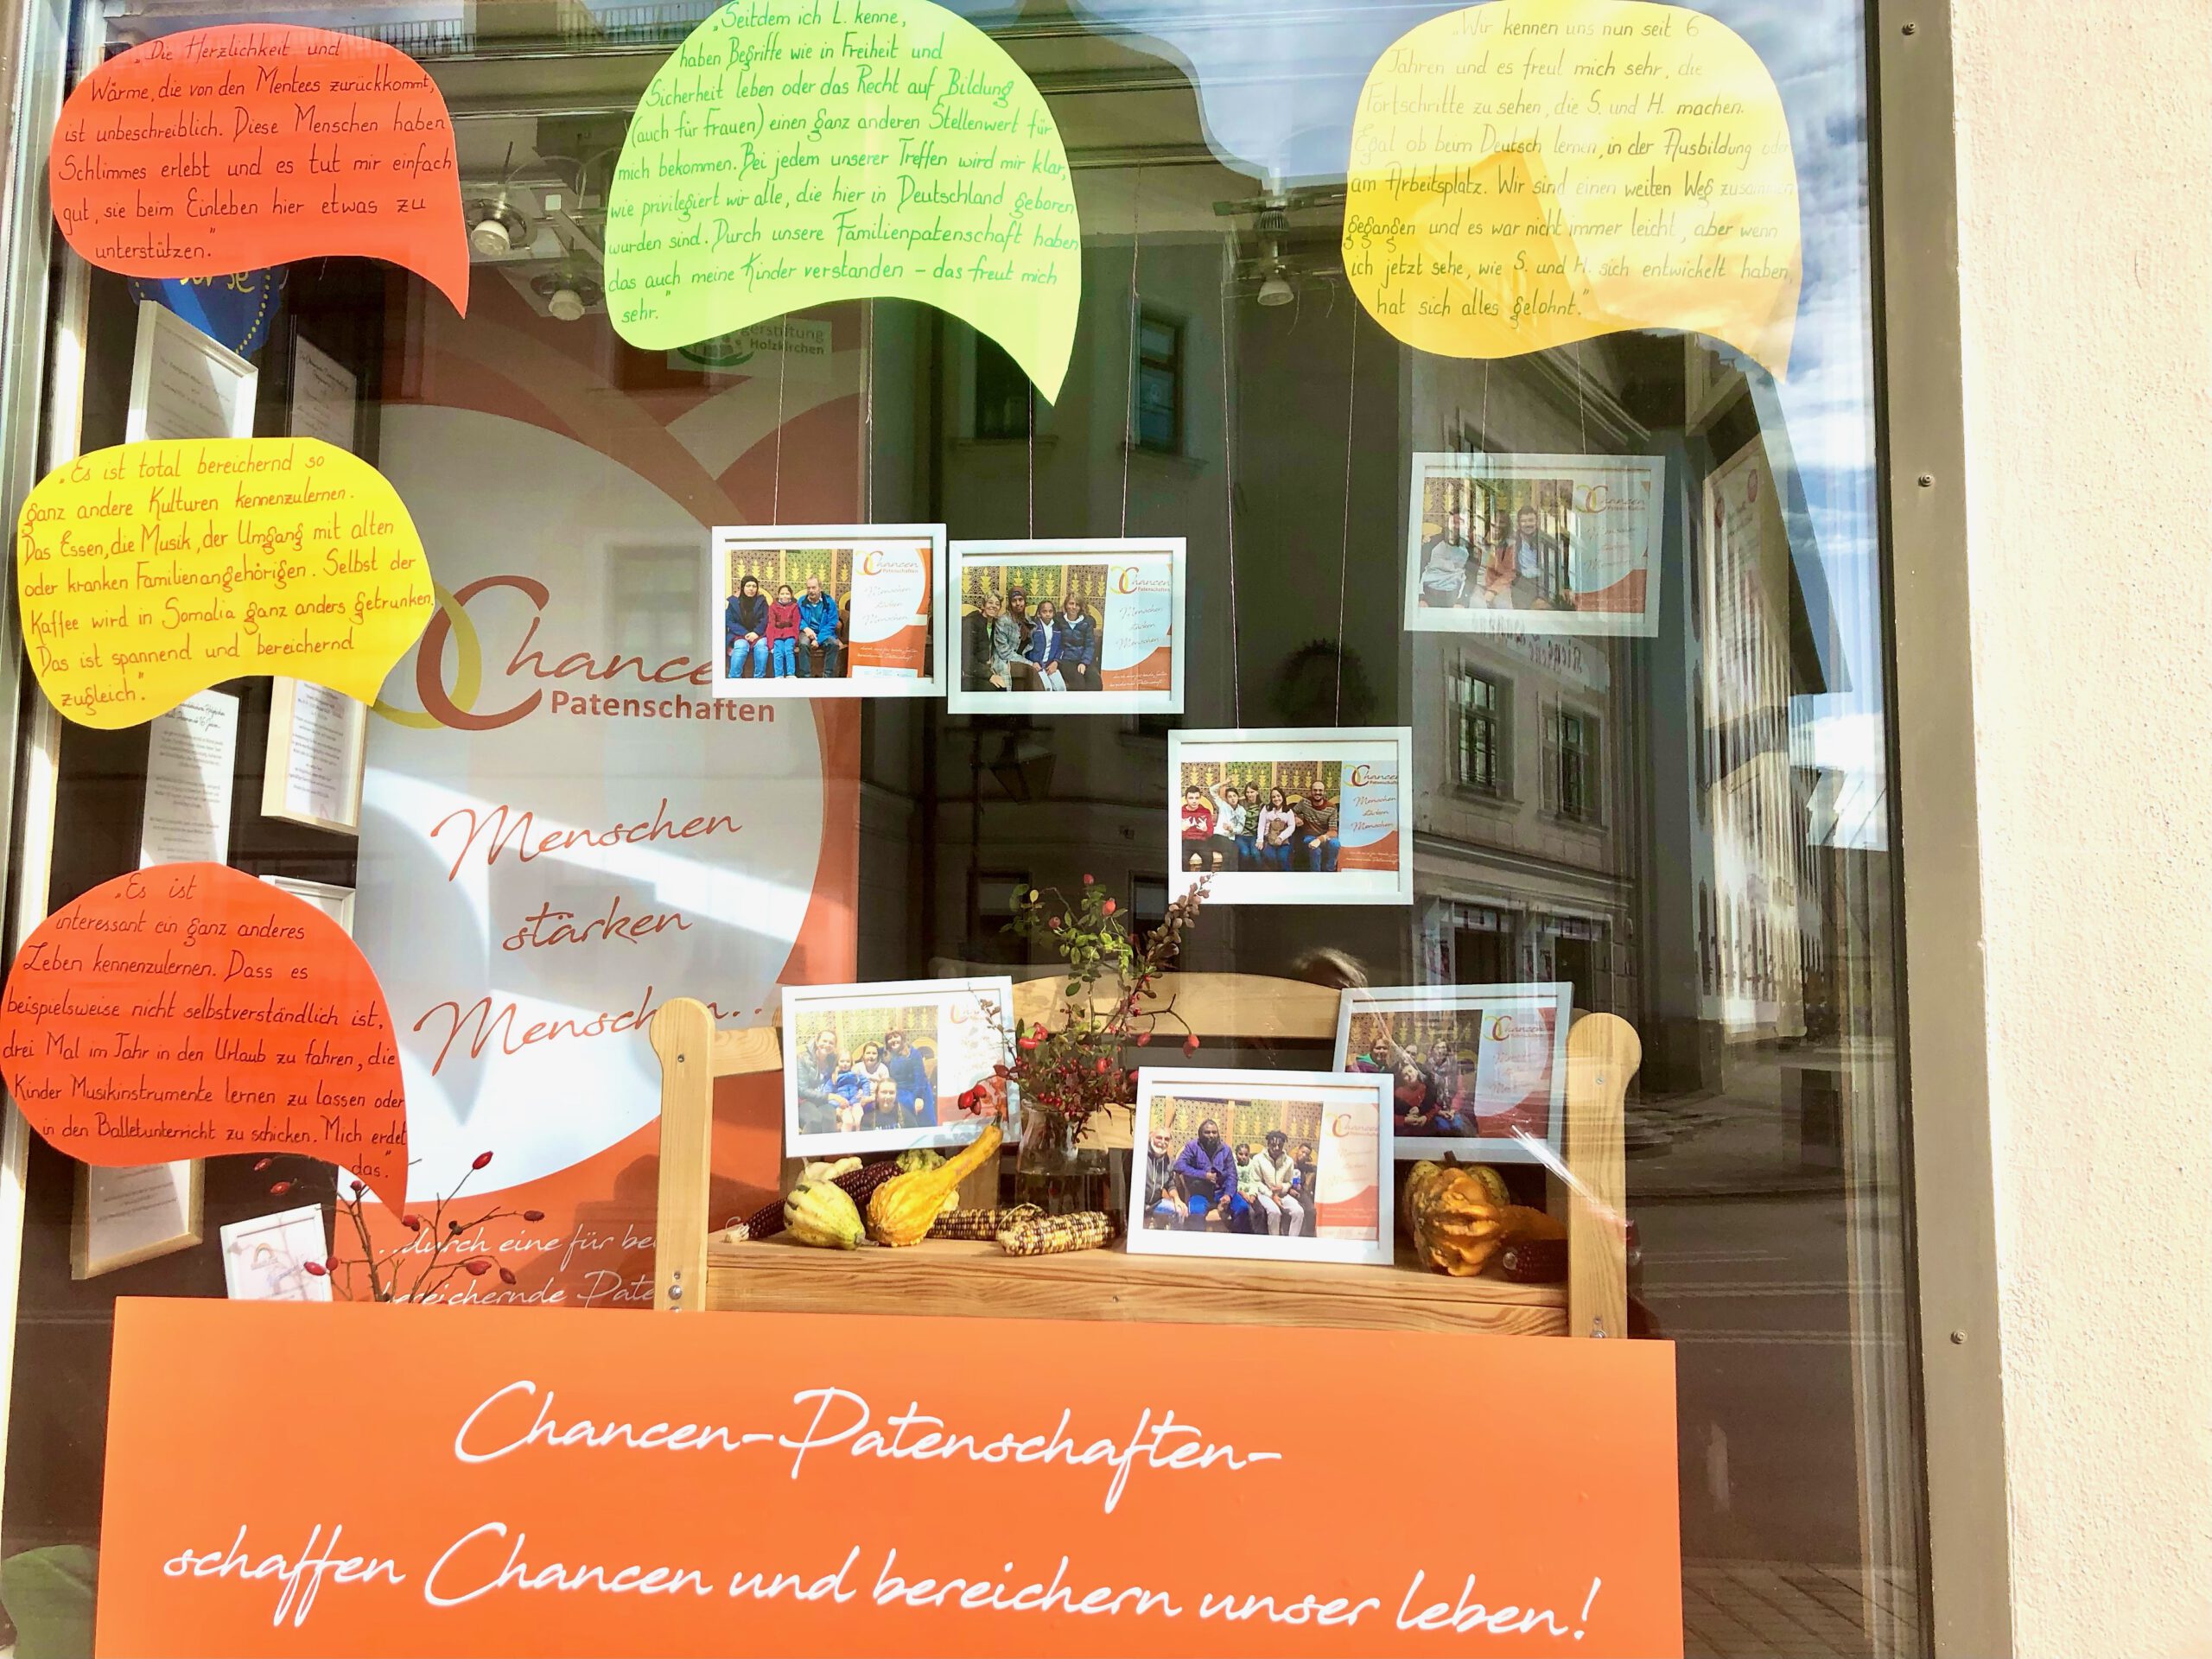 „Die Herzlichkeit und
Wärme, die von den Mentees zurückkommt,
ist unbeschreiblich. Diese Menschen haben
Schlimmes erlebt und es tut mir einfach
gut, sie beim Einleben hier etwas zu
unterstützen."
„Seitdem ich L. kenne,
haben Begriffe wie in Freiheit und
Sicherheit leben oder das Recht auf Bildung
(auch für Frauen) einen ganz anderen Stellenwert für
mich bekommen. Bei jedem unserer Treffen wird mir klar,
wie privilegiert wir alle, die hier in Deutschland geboren
wurden sind. Durch unsere Familienpatenschaft haben
das auch meine Kinder verstanden – das freut mich
sehr."
„Wir kennen uns nun seit 6
Jahren und es freut mich sehr, die
Fortschritte zu sehen, die S. und H. machen.
Egal ob beim Deutsch lernen, in der Ausbildung oder
am Arbeitsplatz. Wir sind einen weiten Weg zusammen
gegangen und es war nicht immer leicht, aber wenn
ich jetzt sehe, wie S. und H. sich entwickelt haben,
hat sich alles gelohnt."
Holzkirchen
„Es ist total bereichernd so
ganz andere Kulturen kennenzulernen.
Das Essen, die Musik, der Umgang mit alten
oder kranken Familienangehörigen. Selbst der
Kaffee wird in Somalia ganz anders getrunken.
Das ist spannend und bereichernd
zugleich."
„Es ist
interessant ein ganz anderes
Leben kennenzulernen. Dass es
beispielsweise nicht selbstverständlich ist,
drei Mal im Jahr in den Urlaub zu fahren, die
Kinder Musikinstrumente lernen zu lassen oder
in den Balletunterricht zu schicken. Mich erdet
das."
Chance
Patenschaften
Menschen
stärken
Menschen...
...durch eine für be
bereichernde Pate
Chancen
Patenschaften
Menschen
stärken
Menschen
Chancen
Patenschaften
Menschen
stärken
Menschen
Chancen
Chancen
Patenschaften
Menschen
stärken
Menschen
Chancen
Chancen
Chancen-Patenschaften-
schaffen Chancen und bereichern unser leben!